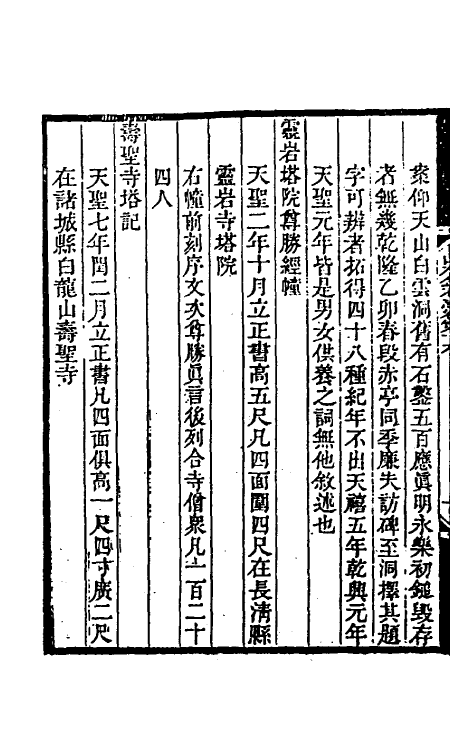 衆仰天山白雲洞舊有石鑿五百應眞明永樂初鎚毀存
者無幾乾隆乙卯春段赤亭同季廉夫訪碑至洞擇其題
字可辨者拓得四十八種紀年不出天禧五年乾興元年
天聖元年皆是男女供養之詞無他敘述也
靈岩塔院尊勝經幢
天聖二年十月立正書高五尺凡四面圍四尺在長清縣
靈岩寺塔院
右幢前刻序文次尊勝眞言後列合寺僧衆凡一百二十
四人
壽聖寺塔記
天聖七年閏二月立正書凡四面俱高一尺四寸廣二尺
在諸城縣白龍山壽聖寺